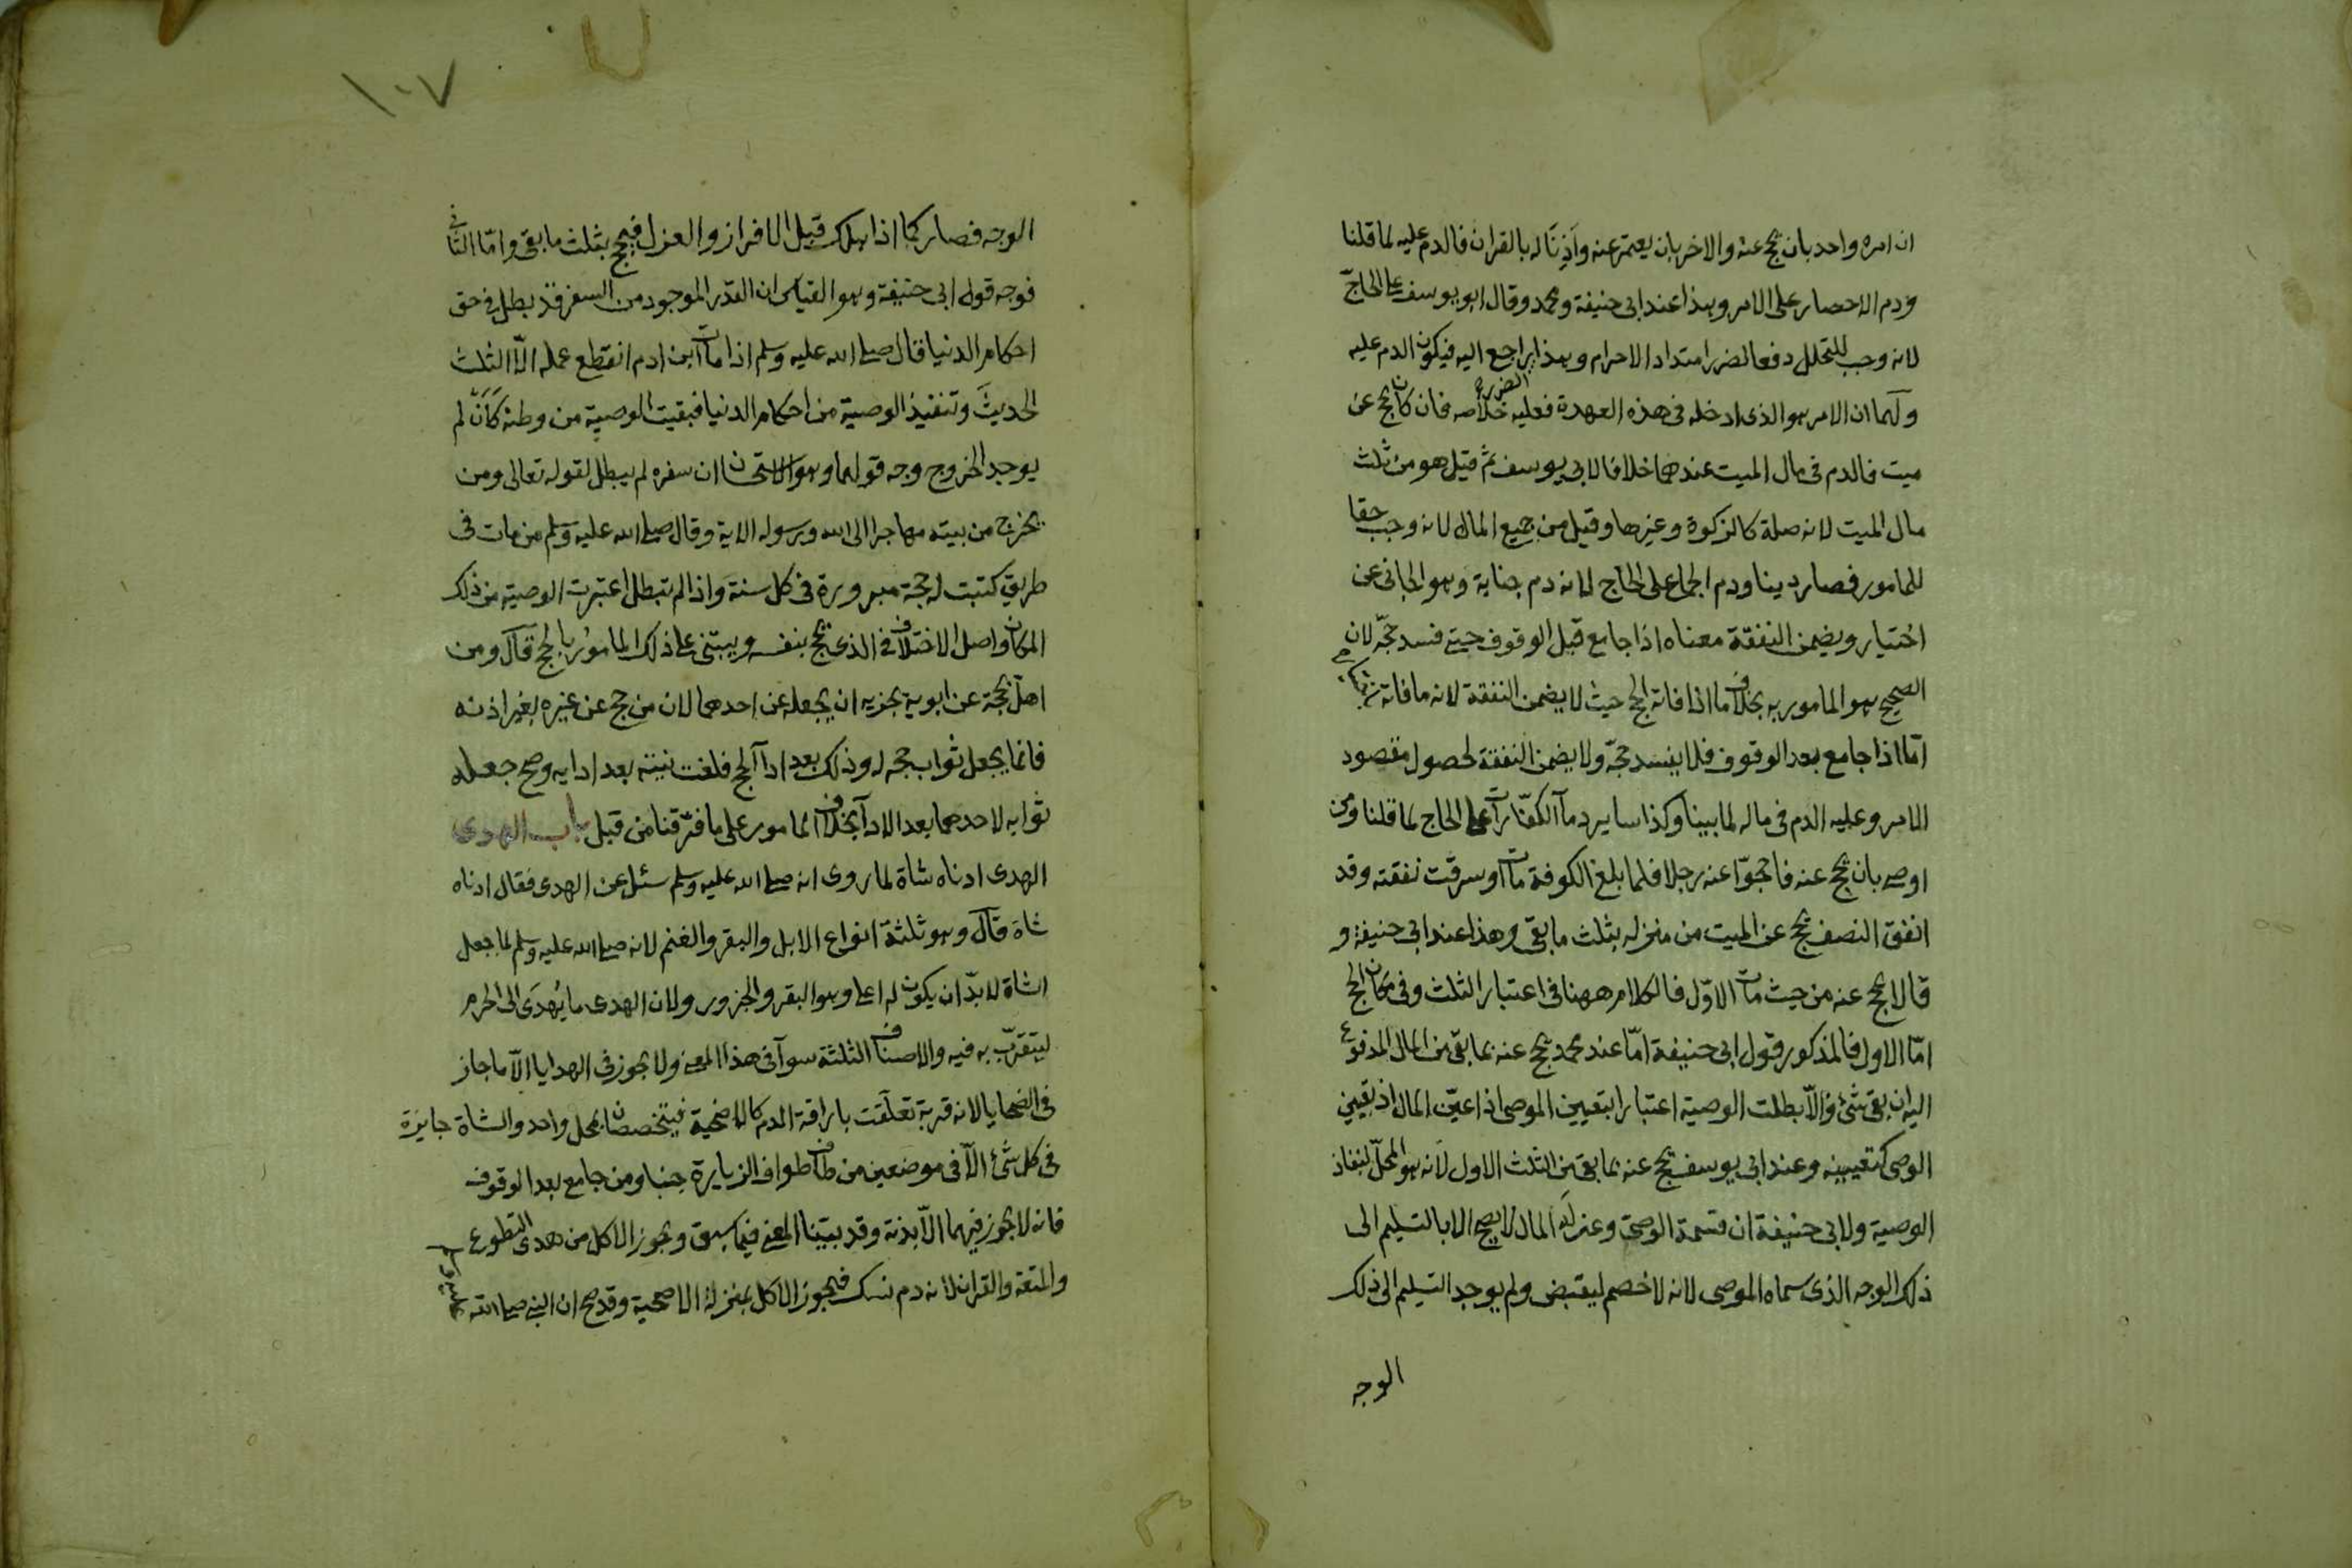 ان امره واحد بان يحج عنه والاخر بان يعتمر عنه واَذِنَا له بالقران فالدم عليه لما قلنا
ودم الاحصار على الامر وهذا عند ابى حنيفة ومحمد وقال ابو يوسف على الحاجّ
لانه وجب للتحلل دفعا لضرر امتداد الاحرام وهذا راجع اليه فيكون الدم عليه
ولهما ان الامر هو الذى ادخله فى هذه العهدة فعليه خلاصه فان كان يحج عن
ميت فالدم فى مال الميت عندهما خلافا لابى يوسف ثم قيل هو من ثلث
مال الميت لانه صلة كالزكوة وغيرها وقيل من جميع المال لانه وجب حقا
للمامور فصار دينا ودم الجماع على الحاج لانه دم جناية وهو الجانى عن
اختيار ويضمن النفقة معناه اذا جامع قبل الوقوف حتى فسد حجّه لان
الصحيح هو المامور به بخلاف ما اذا فاته الحج حيث لا يضمن النفقة لانه ما فاته
امّا اذا جامع بعد الوقوف فلا يفسد حجّه ولا يضمن النفقة لحصول مقصود
الامر وعليه الدم فى ماله لما بينا وكذا ساير دمآ الكفّارات على الحاج لما قلنا ومن
اوصى بان يحج عنه فاحجّوا عنه رجلا فلما بلغ الكوفة مات او سرقت نفقته وقد
انفق النصف يحج عن الميت من منزله بثلث ما بقى وهذا عند ابى حنيفة و
قالا يحج عنه من حيث مات الاوّل فالكلام ههنا فى اعتبار الثلث وفى مكان الحج
امّا الاول فالمذكور قول ابى حنيفة امّا عند محمد يحج عنه بما بقى من المال المدفوع
اليه ان بقى شئ والاّ بطلت الوصية اعتبارا بتعيين الموصى اذا عيّن المال اذ تعيين
الوصى كتعيينه وعند ابى يوسف يحج عنه بما بقى من الثلث الاول لانه هو المحلّ لنفاذ
الوصية ولابى حنيفة ان قسمة الوصى وعزله المال لا يصح الا بالتسليم الى
ذلك الوجه الذى سماه الموصى لانه لا خصم ليقبض ولم يوجد التسليم الى ذلك
الوجه
١٠٧
الوجه فصار كما اذا هلك قبل الافراز والعزل فيحج بثلث ما بقى وامّا الثانى
فوجه قول ابى حنيفة وهو القياس ان القدر الموجود من السفر قد بطل فى حق
احكام الدنيا قال صلى الله عليه وسلم اذا مات ابن ادم انقطع عمله الاّ الثلث
الحديث وتنفيذ الوصية من احكام الدنيا فبقيت الوصية من وطنه كَاَنْ لم
يوجد الخروج وجه قولهما وهو الاستحسان ان سفره لم يبطل لقوله تعالى ومن
يخرج من بيته مهاجرا الى الله ورسوله الاية وقال صلى الله عليه وسلم من مات فى
طريق كتبت له حجة مبرورة فى كل سنة واذا لم تبطل اعتبرت الوصية من ذلك
المكان واصل الاختلاف فى الذى يحج بنفسه ويبتنى على ذلك المامور بالحج قال ومن
اهلّ بحجة عن ابويه يجزيه ان يجعله عن احدهما لان من حج عن غيره بغير اذنه
فانما يجعل ثواب حجه له وذلك بعد ادآ الحج فلغت نيته بعد ادايه وصح جعله
ثوابه لاحدهما بعد الادآ بخلاف المامور على ما فرّقنا من قبل باب الهدى
الهدى ادناه شاة لما روى انه صلى الله عليه وسلم سئل عن الهدى فقال ادناه
شاة قال وهو ثلثة انواع الابل والبقر والغنم لانه صلى الله عليه وسلم لما جعل
الشاة لا بدّ ان يكون له اعلى وهو البقر والجزور ولان الهدى ما يُهدَى الى الحرم
ليتقرّب به فيه والاصناف الثلثة سوآ فى هذا المعنى ولا يجوز فى الهدايا الاّ ما جاز
فى الضحايا لانه قربة تعلّقت باراقة الدم كالاضحية فيتخصصان بمحل واحد والشاة جايزة
فى كل شئ الاّ فى موضعين من طاف طواف الزيارة جنبا ومن جامع بعد الوقوف
فانه لا يجوز فيهما الاّ بدنة وقد بيّنا المعنى فيما سبق ويجوز الاكل من هدى التطوع
والمتعة والقران لانه دم نسك فيجوز الاكل بمنزلة الاضحية وقد صح ان النبى صلى الله